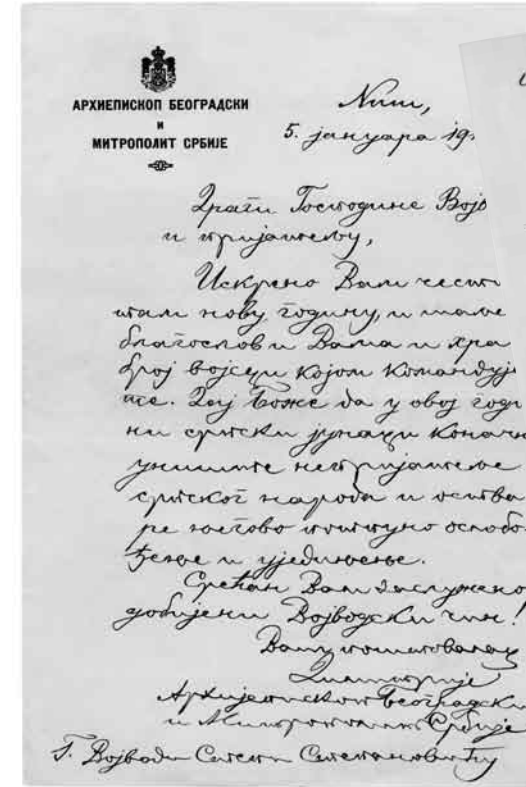 АРХИЕПИСКОП БЕОГРАДСКИ
И
МИТРОПОЛИТ СРБИЈЕ
Ниш,
5. јануара 19
Драги Господине Војво
и пријатељу,
Искрено Вам чести
там нову годину, и шаљем
благослов и Вама и хра
број војсци којом командује
те. Дај Боже да у овој годи
ни српски јунаци коначно
униште непријатеље
српског народа и оства
ре његово потпуно осло
ђење и уједињење.
Срећан Вам заслужено
добијени Војводски чин!
Ваш поштовалац
Димитрије
Архијепископ Београдски
и Митрополит Србије
Г. Војводи Степи Степановићу